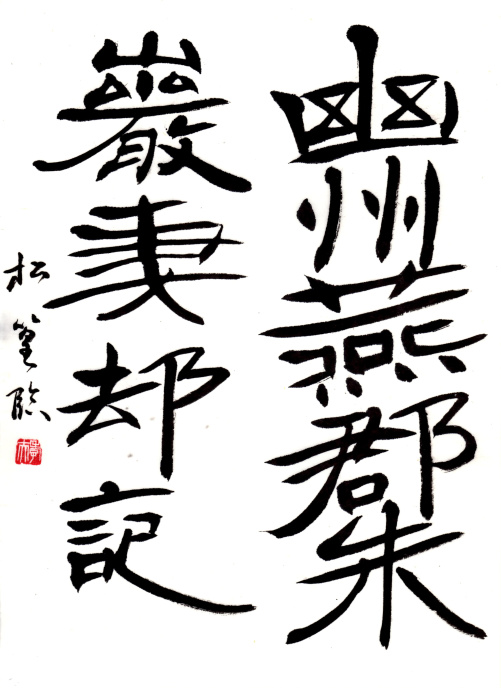 幽州燕郡朱
巖妻却記
松篁臨